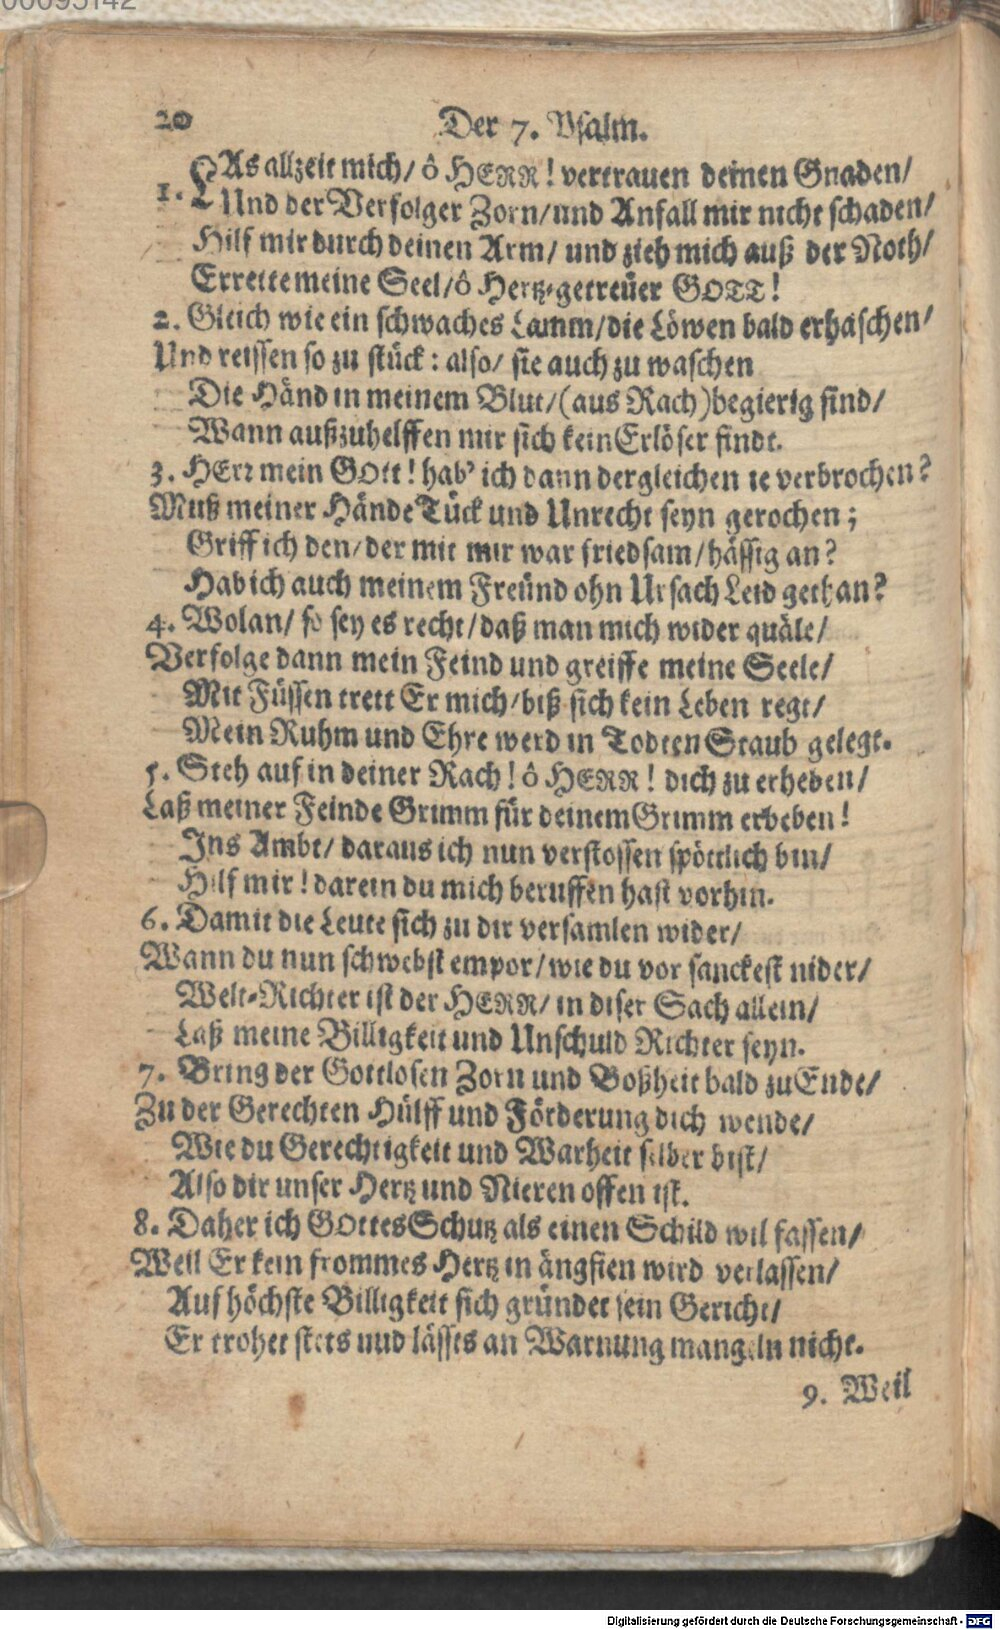 00095142
20 Der 7. Psalm.
1. LAs allzeit mich/ ô HERR! vertrauen deinen Gnaden/
Und der Verfolger Zorn/und Anfall mir nicht schaden/
Hilf mir durch deinen Arm/ und zieh mich auß der Noth/
Errette meine Seel/ô Hertz-getreüer GOTT!
2. Gleich wie ein schwaches Lamm/die Löwen bald erhaschen/
Und reissen so zu stück: also/ sie auch zu waschen
Die Händ in meinem Blut/(aus Rach)begierig sind/
Wann außzuhelffen mir sich kein Erlöser findt.
3. HErr mein GOtt! hab' ich dann dergleichen ie verbrochen?
Muß meiner Hände Tück und Unrecht seyn gerochen;
Griff ich den/der mit mir war friedsam/hässig an?
Hab ich auch meinem Freünd ohn Ursach Leid gethan?
4. Wolan/ so sey es recht/daß man mich wider quäle/
Verfolge dann mein Feind und greiffe meine Seele/
Mit Füssen trett Er mich/biß sich kein Leben regt/
Mein Ruhm und Ehre werd in Todten Staub gelegt.
5. Steh auf in deiner Rach! ô HERR! dich zu erheben/
Laß meiner Feinde Grimm für deinem Grimm erbeben!
Ins Ambt/ daraus ich nun verstossen spöttlich bin/
Hilf mir! darein du mich beruffen hast vorhin.
6. Damit die Leute sich zu dir versamlen wider/
Wann du nun schwebst empor/wie du vor sanckest nider/
Welt-Richter ist der HERR/ in diser Sach allein/
Laß meine Billigkeit und Unschuld Richter seyn.
7. Bring der Gottlosen Zorn und Boßheit bald zu Ende/
Zu der Gerechten Hülff und Förderung dich wende/
Wie du Gerechtigkeit und Warheit selber bist/
Also dir unser Hertz und Nieren offen ist.
8. Daher ich GOttes Schutz als einen Schild wil fassen/
Weil Er kein frommes Hertz in ängsten wird verlassen/
Auf höchste Billigkeit sich gründet sein Gericht/
Er trohet stets uud lässts an Warnung mangeln nicht.
9. Weil
Digitalisierung gefördert durch die Deutsche Forschungsgemeinschaft - DFG